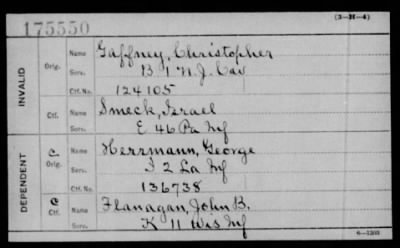 175550
(3—H—4)
INVALID
Orig.
Name Gaffney, Christopher
Serv. B 1 N.J. Cav
Ctf. No. 124105
Ctf.
Name Smeck, Israel
Serv. E 46 Pa Inf
DEPENDENT
C Orig.
Name Herrmann, George
Serv. I 2 La Inf
Ctf. No. 136738
C Ctf.
Name Flanagan, John B.
Serv. K 11 Wis Inf